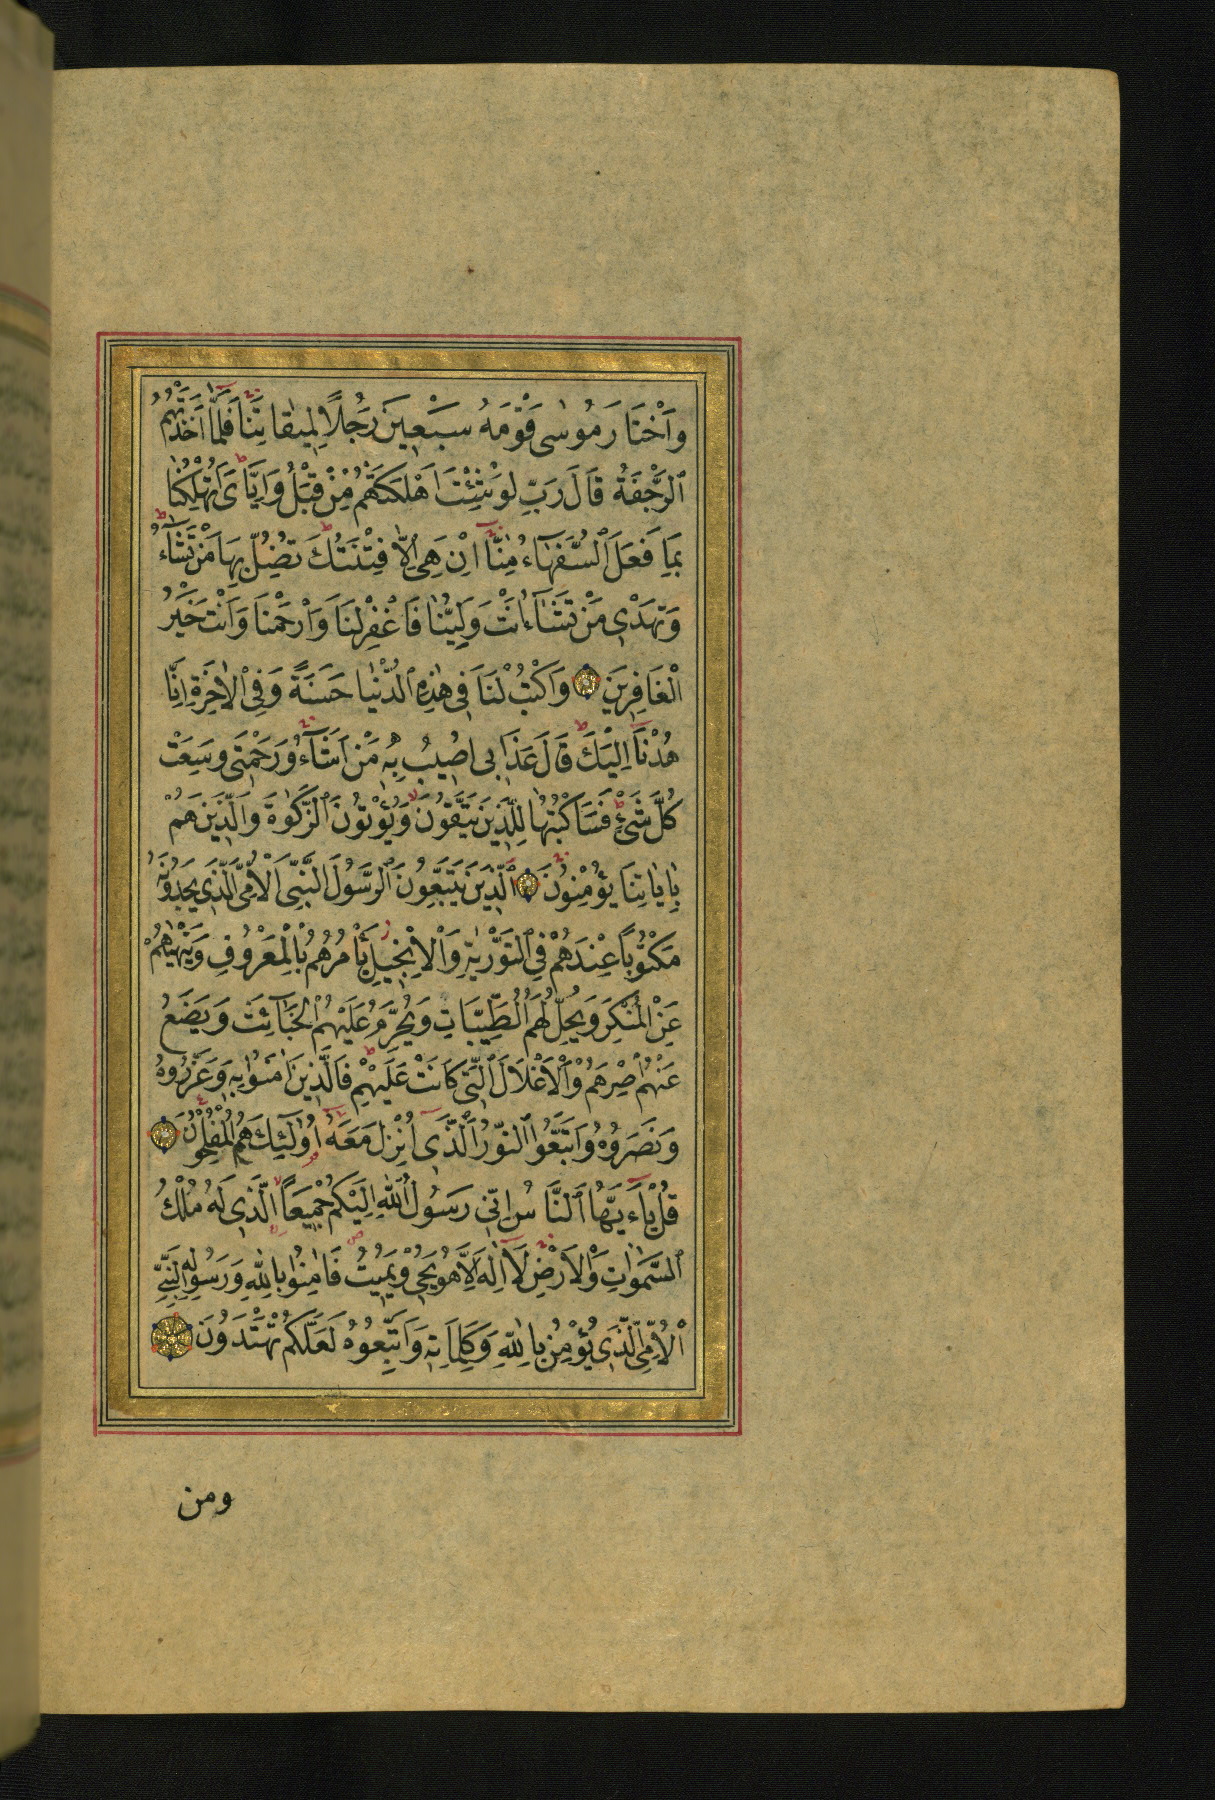 وَاخْتَارَ مُوسٰى قَوْمَهُ سَبْعِينَ رَجُلًا لِمِيقَاتِنَا فَلَمَّا اَخَذَتْهُمُ
الرَّجْفَةُ قَالَ رَبِّ لَوْ شِئْتَ اَهْلَكْتَهُمْ مِنْ قَبْلُ وَاِيَّاىَ اَتُهْلِكُنَا
بِمَا فَعَلَ السُّفَهَاءُ مِنَّا اِنْ هِىَ اِلَّا فِتْنَتُكَ تُضِلُّ بِهَا مَنْ تَشَاءُ
وَتَهْدِى مَنْ تَشَاءُ اَنْتَ وَلِيُّنَا فَاغْفِرْ لَنَا وَارْحَمْنَا وَاَنْتَ خَيْرُ
الْغَافِرِينَ وَاكْتُبْ لَنَا فِى هٰذِهِ الدُّنْيَا حَسَنَةً وَفِى الْاٰخِرَةِ اِنَّا
هُدْنَا اِلَيْكَ قَالَ عَذَابِى اُصِيبُ بِهِ مَنْ اَشَاءُ وَرَحْمَتِى وَسِعَتْ
كُلَّ شَىْءٍ فَسَاَكْتُبُهَا لِلَّذِينَ يَتَّقُونَ وَيُؤْتُونَ الزَّكٰوةَ وَالَّذِينَ هُمْ
بِاٰيَاتِنَا يُؤْمِنُونَ اَلَّذِينَ يَتَّبِعُونَ الرَّسُولَ النَّبِىَّ الْاُمِّىَّ الَّذِى يَجِدُونَهُ
مَكْتُوبًا عِنْدَهُمْ فِى التَّوْرٰيةِ وَالْاِنْجِيلِ يَاْمُرُهُمْ بِالْمَعْرُوفِ وَيَنْهٰيهُمْ
عَنِ الْمُنْكَرِ وَيُحِلُّ لَهُمُ الطَّيِّبَاتِ وَيُحَرِّمُ عَلَيْهِمُ الْخَبَائِثَ وَيَضَعُ
عَنْهُمْ اِصْرَهُمْ وَالْاَغْلَالَ الَّتِى كَانَتْ عَلَيْهِمْ فَالَّذِينَ اٰمَنُوا بِهِ وَعَزَّرُوهُ
وَنَصَرُوهُ وَاتَّبَعُوا النُّورَ الَّذِى اُنْزِلَ مَعَهُ اُولٰئِكَ هُمُ الْمُفْلِحُونَ
قُلْ يَاءَيُّهَا النَّاسُ اِنِّى رَسُولُ اللّٰهِ اِلَيْكُمْ جَمِيعًا الَّذِى لَهُ مُلْكُ
السَّمٰوَاتِ وَالْاَرْضِ لَا اِلٰهَ اِلَّا هُوَ يُحْىِ وَيُمِيتُ فَاٰمِنُوا بِاللّٰهِ وَرَسُولِهِ النَّبِىِّ
الْاُمِّىِّ الَّذِى يُؤْمِنُ بِاللّٰهِ وَكَلِمَاتِهِ وَاتَّبِعُوهُ لَعَلَّكُمْ تَهْتَدُونَ
ومن